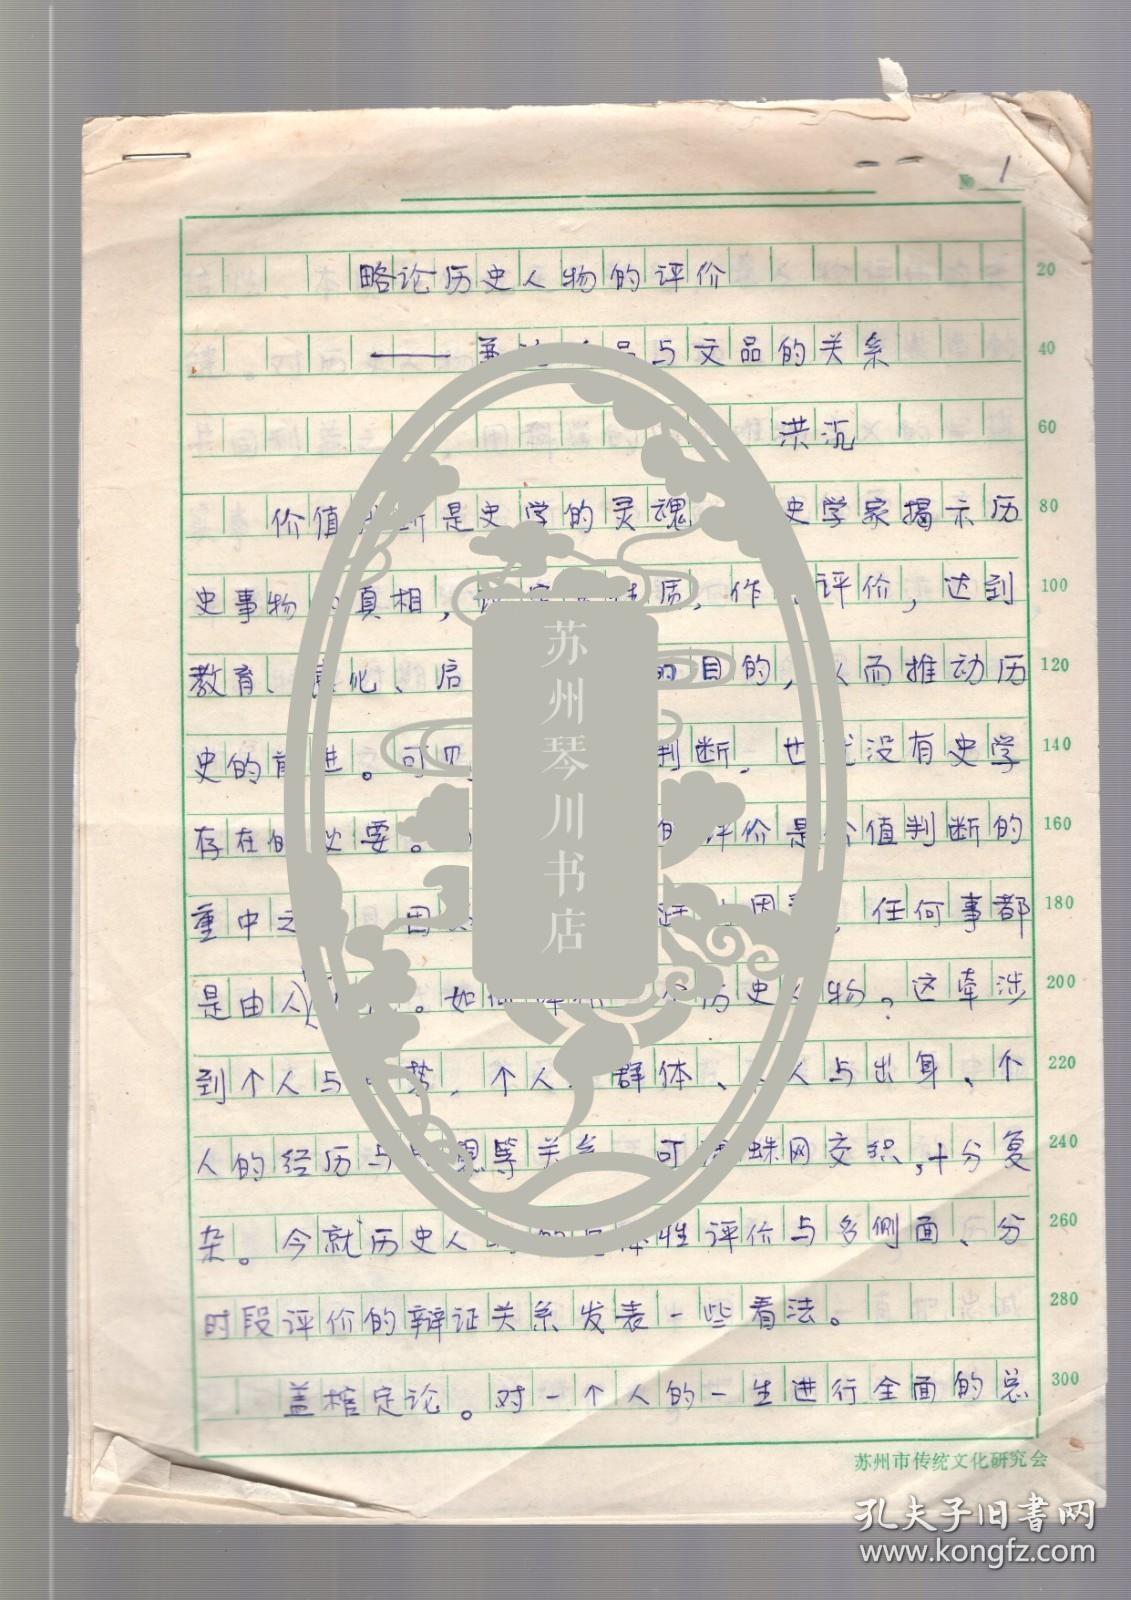 № 1
略论历史人物的评价 20
——兼 品与文品的关系 40
洪沉 60
价值 断是史学的灵魂 史学家揭示历 80
史事物 真相, 性质,作 评价,达到 100
教育、 化、启 的目的,从而推动历 120
史的前进。可见 判断,也就没有史学 140
存在的必要。 评价是价值判断的 160
重中之 因 任何事都 180
是由人 。如何 历史人物?这牵涉 200
到个人与 势、个人 群体、 人与出身、个 220
人的经历与 思等关系 可 蛛网交织,十分复 240
杂。今就历史人 的 体性评价与多侧面、分 260
时段评价的辩证关系发表一些看法。 280
盖棺定论。对一个人的一生进行全面的总 300
苏州市传统文化研究会
苏州琴川书店
孔夫子旧书网
www.kongfz.com